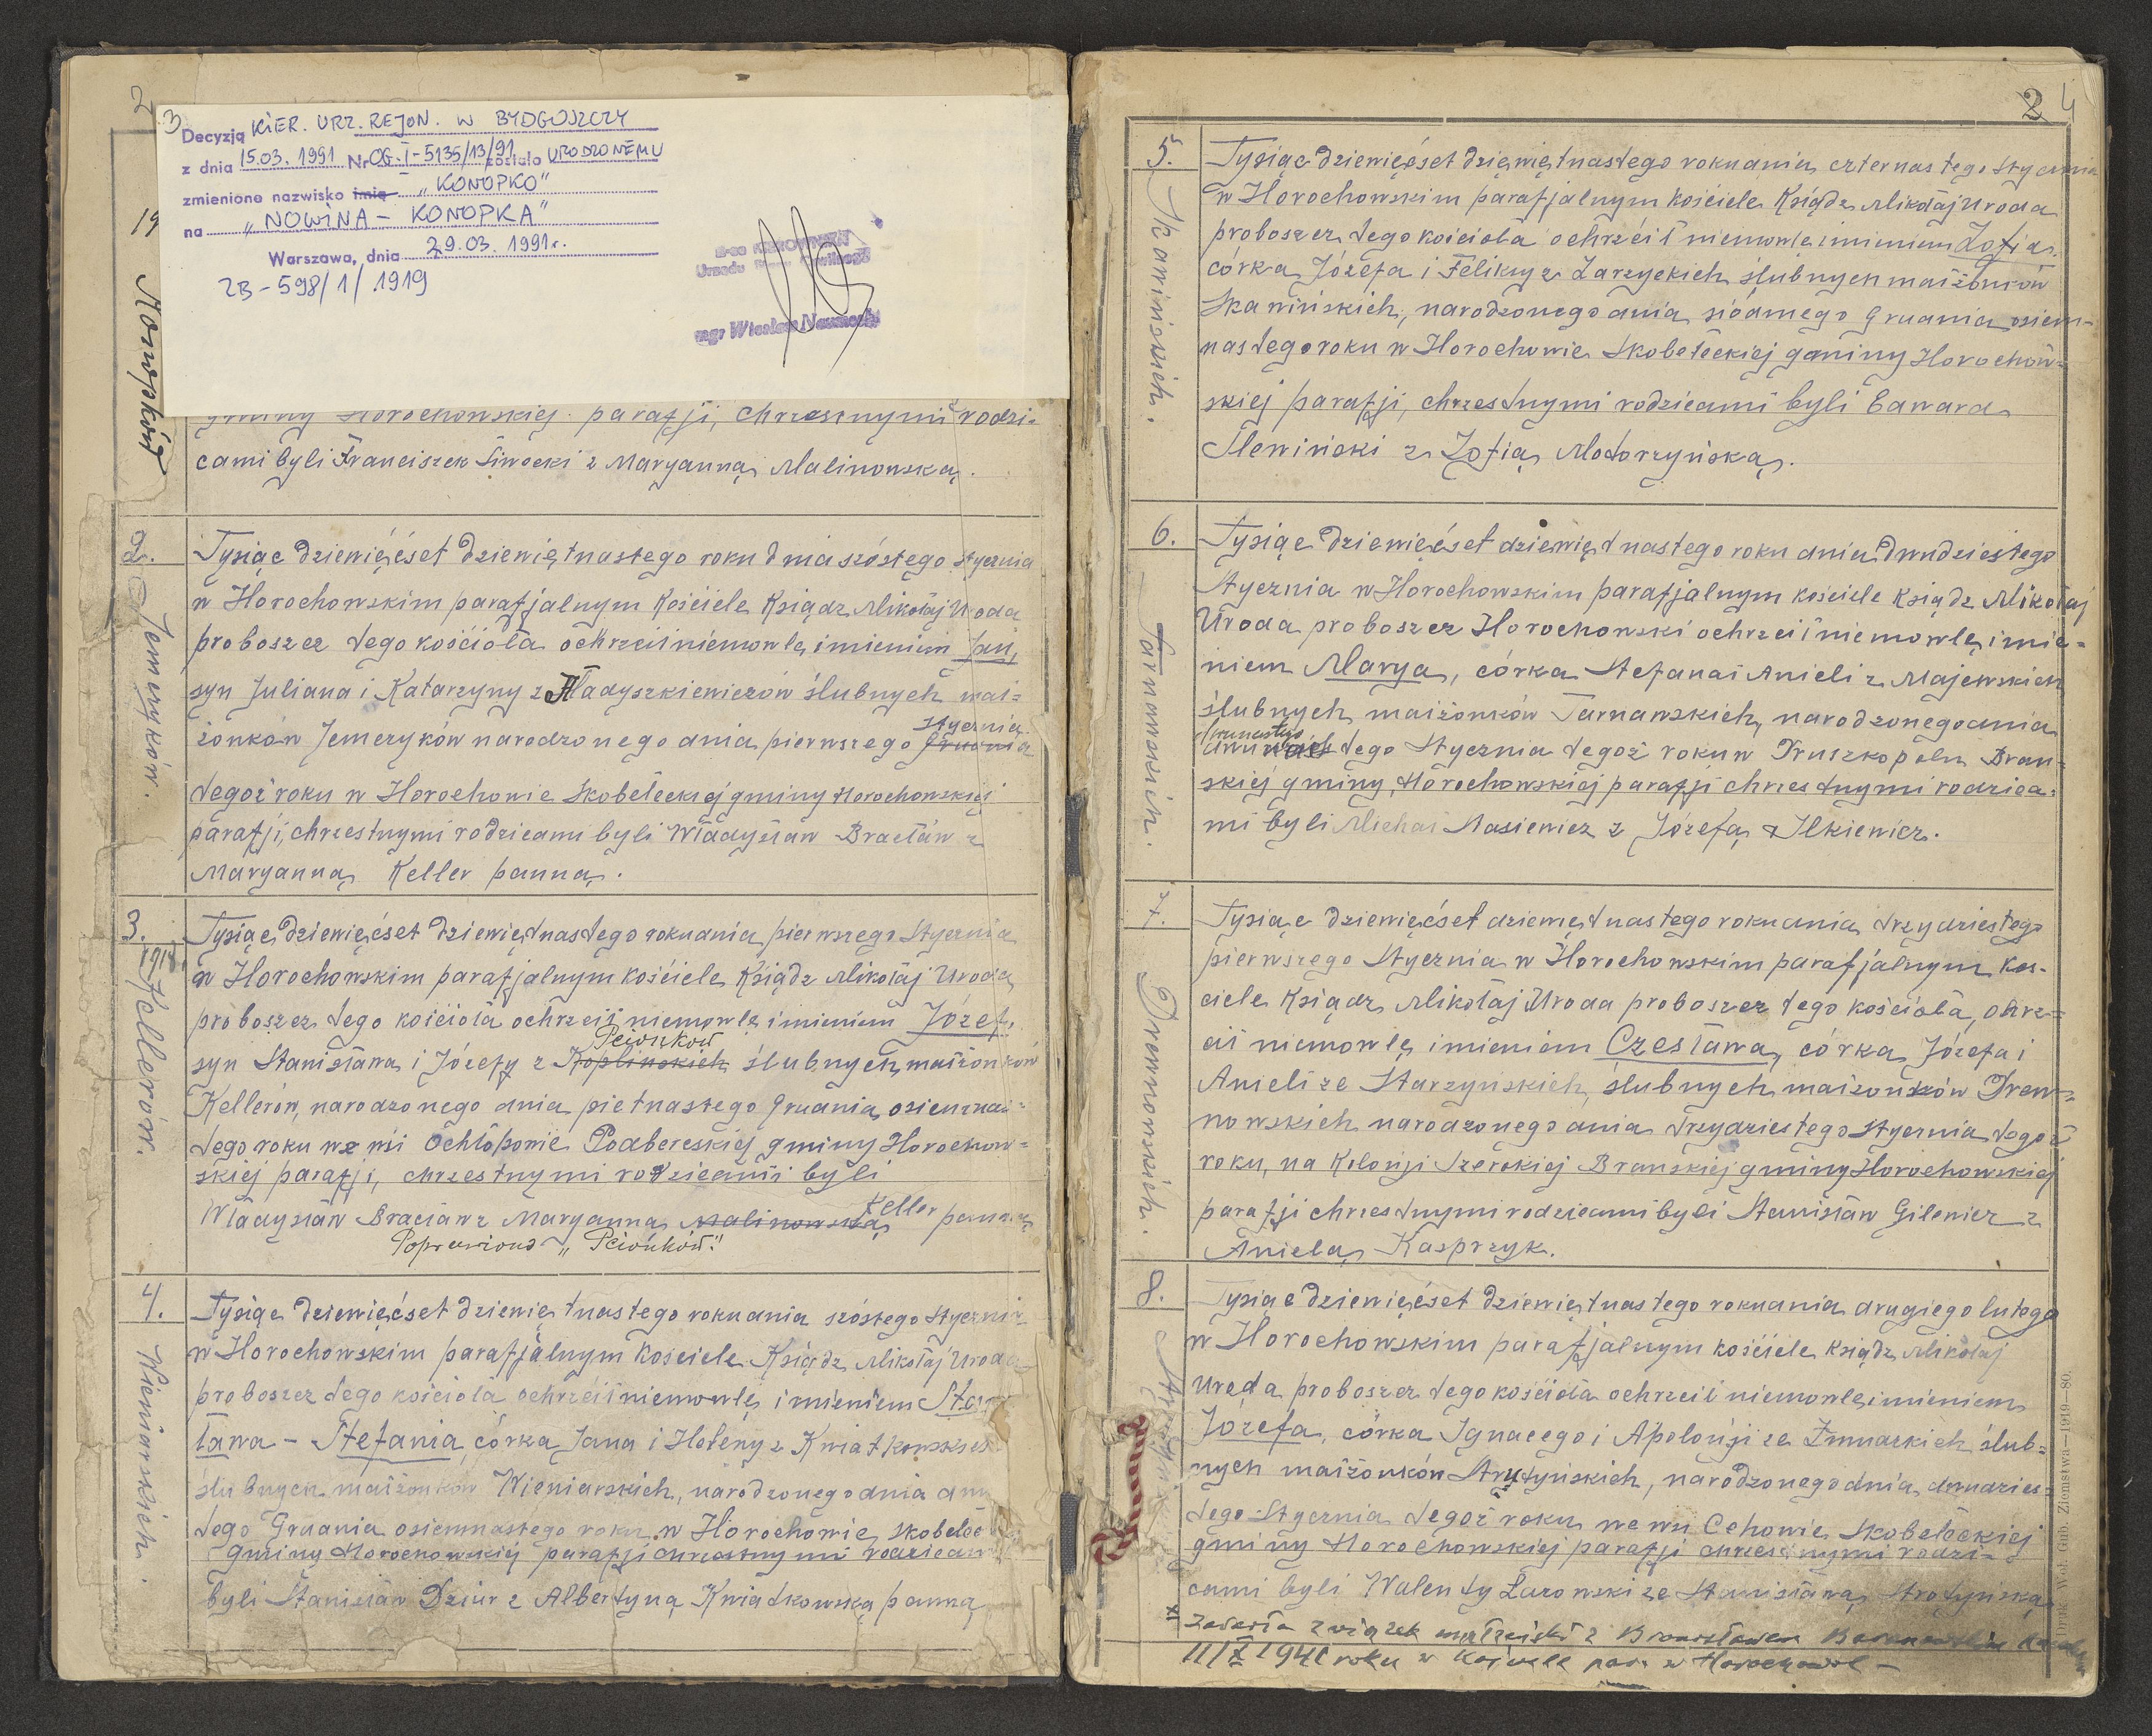 2
3
Decyzją KIER. URZ. REJON. W BYDGOSZCZY
z dnia 15.03.1991 Nr OG.I-5135/13/91 została URODZONEMU
zmienione nazwisko imię „KONOPKO”
na „NOWINA – KONOPKA”
Warszawa, dnia 29.03.1991r.
ZB-598/1/1919
mgr Wiesław
19
gminy Horochowskiej parafji, chrzestnymi rodzi-
cami byli Franciszek Siwocki z Maryanną Malinowską.
2.
Jemeryków.
Tysiąc dziewięćset dziewiętnastego roku dnia szóstego stycznia
w Horochowskim parafjalnym Kościele Ksiądz Mikołaj Uroda
proboszcz tego kościoła ochrzcił niemowlę imieniem Jan,
syn Juliana i Katarzyny z Hładyszkiewiczów ślubnych mał-
stycznia
żonków Jemeryków narodzonego dnia pierwszego Grudnia
tegoż roku w Horochowie Skobełeckiej gminy Horochowskiej
parafji, chrzestnymi rodzicami byli Władysław Bracław z
Maryanną Keller panną.
3.
1918
Kellerów.
Tysiąc dziewięćset dziewiętnastego roku dnia pierwszego Stycznia
w Horochowskim parafjalnym kościele Ksiądz Mikołaj Uroda
proboszcz tego kościoła ochrzcił niemowlę imieniem Józef,
Pcionków
syn Stanisława i Józefy z Koplinskich ślubnych małżonków
Kellerów, narodzonego dnia pietnastego Grudnia osiemnas-
tego roku we wsi Ochłopowie Podbereskiej gminy Horochow-
skiej parafji, chrzestnymi rodzicami byli
Keller
Władysław Bracław z Maryanną Malinowską panną
Poprawiono „Pcionków”
4.
Wieniarskich.
Tysiąc dziewięćset dziewiętnastego roku dnia szóstego Stycznia
w Horochowskim parafjalnym Kościele Ksiądz Mikołaj Uroda
proboszcz tego kościoła ochrzcił niemowlę imieniem Stan
ława – Stefania, córka Jana i Heleny z Kwiatkowskich
ślubnych małżonków Wieniarskich, narodzonego dnia dwu
tego Grudnia osiemnastego roku w Horochowie Skobełec
gminy Horochowskiej parafji chrzestnymi rodzicam
byli Stanisław Dziur z Albertyną Kwiatkowską panną
2 4
5.
Skawińskich.
Tysiąc dziewięćset dziewiętnastego roku dnia czternastego Stycznia
w Horochowskim parafjalnym kościele Ksiądz Mikołaj Uroda
proboszcz tego kościoła ochrzcił niemowlę imieniem Zofia,
córka Józefa i Feliksy z Zarzyckich ślubnych małżonków
Skawińskich, narodzonego dnia siódmego Grudnia osiem-
nastego roku w Horochowie Skobełeckiej gminy Horochow-
skiej parafji, chrzestnymi rodzicami byli Edward
Slewiński z Zofią Modorzyńską.
6.
Tarnawskich.
Tysiąc dziewięćset dziewiętnastego roku dnia dwudziestego
Stycznia w Horochowskim parafjalnym kościele Ksiądz Mikołaj
Uroda proboszcz Horochowski ochrzcił niemowlę imie-
niem Marya, córka Stefana i Anieli z Majewskich
ślubnych małżonków Tarnawskich, narodzonego dnia
dwunastego Stycznia tegoż roku w Pruszkopolu Bran-
skiej gminy, Horochowskiej parafji chrzestnymi rodzica-
mi byli Michał Stasiewicz z Józefą Ilkiewicz.
7.
Drewnowskich.
Tysiąc dziewięćset dziewiętnastego roku dnia trzydziestego
pierwszego Stycznia w Horochowskim parafjalnym koś-
ciele Ksiądz Mikołaj Uroda proboszcz tego kościoła, ochrz-
cił niemowlę imieniem Czesława, córka Józefa i
Anieli ze Starzyńskich, ślubnych małżonków Drew-
nowskich narodzonego dnia trzydziestego Stycznia tegoż
roku, na Kolonji Szerokiej Branskiej gminy Horochowskiej
parafji chrzestnymi rodzicami byli Stanisław Gilewicz z
Anielą Kasprzyk.
8.
Tysiąc dziewięćset dziewiętnastego roku dnia drugiego lutego
w Horochowskim parafjalnym kościele Ksiądz Mikołaj
Uroda proboszcz tego kościoła ochrzcił niemowlę imieniem
Józefa, córka Ignacego i Apolonji ze Żmudzkich ślub-
nych małżonków Strutyńskich, narodzonego dnia, dwudzies-
tego Stycznia tegoż roku we wsi Cehowie Skobełeckiej
gminy Horochowskiej parafji chrzestnymi rodzi-
cami byli Walenty Łazowski ze Stanisławą Strotyńską
x zawarła związek małżeński z Bronisławem
11/X 1941 roku w kościele par. w Horochowie –
Druk. Woł. Gub. Ziemstwa—1919—80.